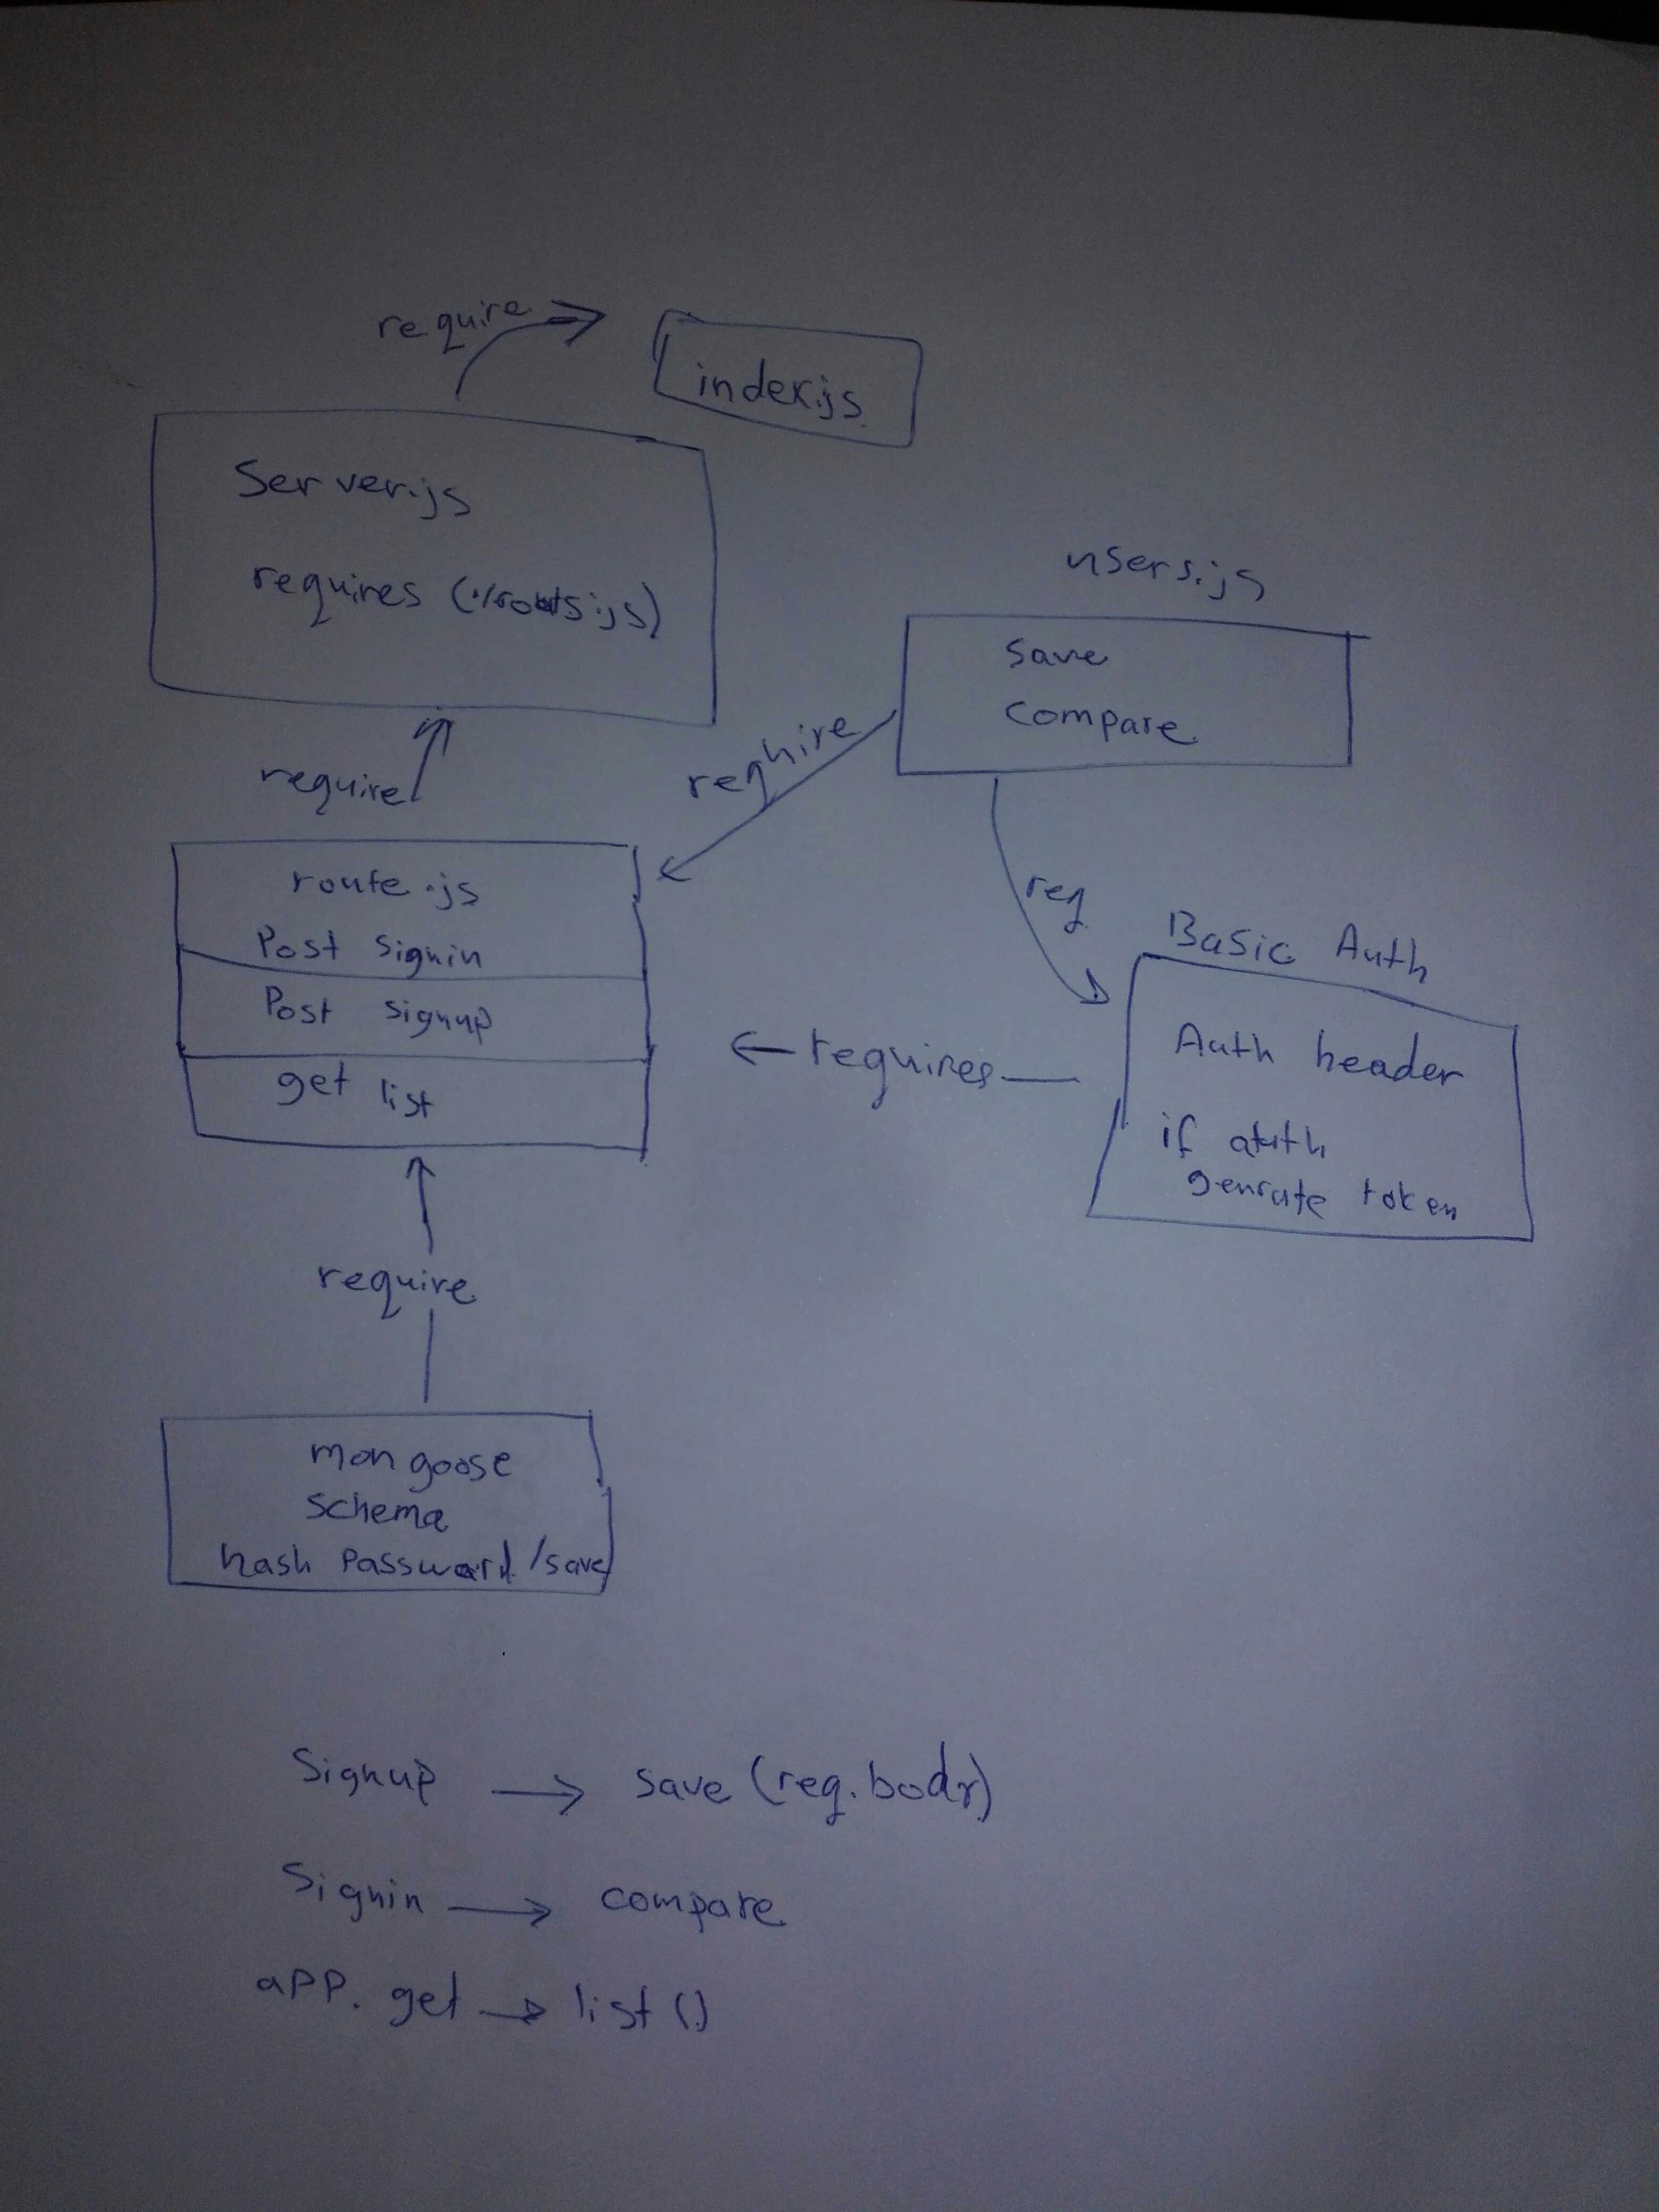 require
index.js
Server.js
requires (./routs.js)
users.js
save
compare
require
require
route.js
Post signin
Post signup
get list
req
Basic Auth
requires
Auth header
if auth
genrate token
require
mongoose
schema
hash password/save
Signup → save (req.body)
Signin → compare
app.get → list()